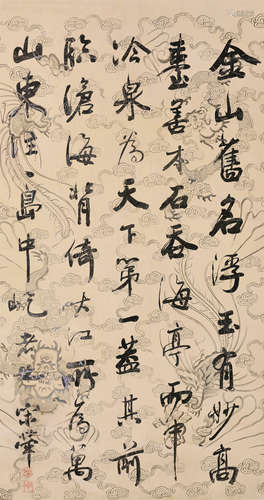 金山舊名浮玉有妙高
臺善本石吞海亭而中
冷泉為天下第一蓋其前
臨滄海背倚大江所為萬
山東注一島中屹者也宋犖